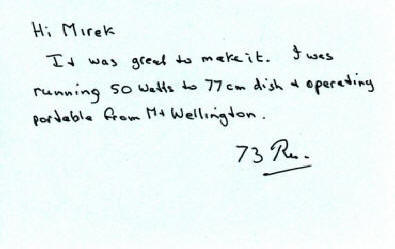 Hi Mirek
It was great to make it. I was
running 50 watts to 77cm dish & operating
portable from Mt Wellington.
73